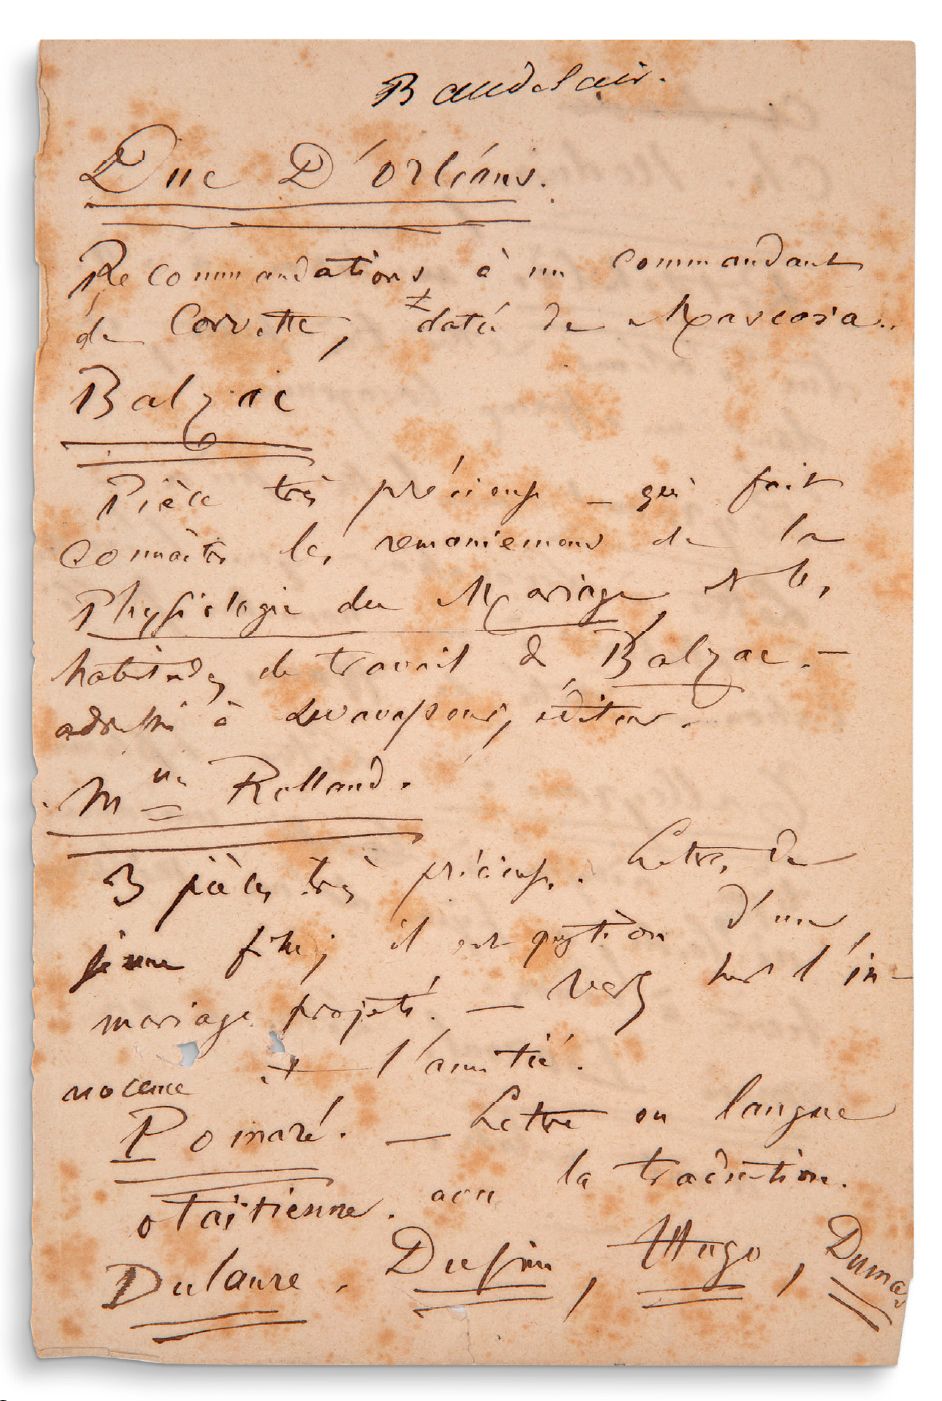 Baudelaire.
Duc D'Orléans.
Recommandations à un commandant
de Corvette, datée de Mascara..
Balzac
Pièce très précieuse — qui fait
connaître les remaniemens de la
Physiologie du Mariage et les
habitudes de travail de Balzac. —
adressé à Levavasseur, éditeur.
Mme Rolland.
3 pièces très précieuses. Lettres de
jeune fille; il est question d'un
mariage projeté. — Vers sur l'in-
nocence et l'amitié.
Pomaré. — Lettre en langue
otaïtienne. avec la traduction.
Dulaure. Dupin, Hugo, Dumas